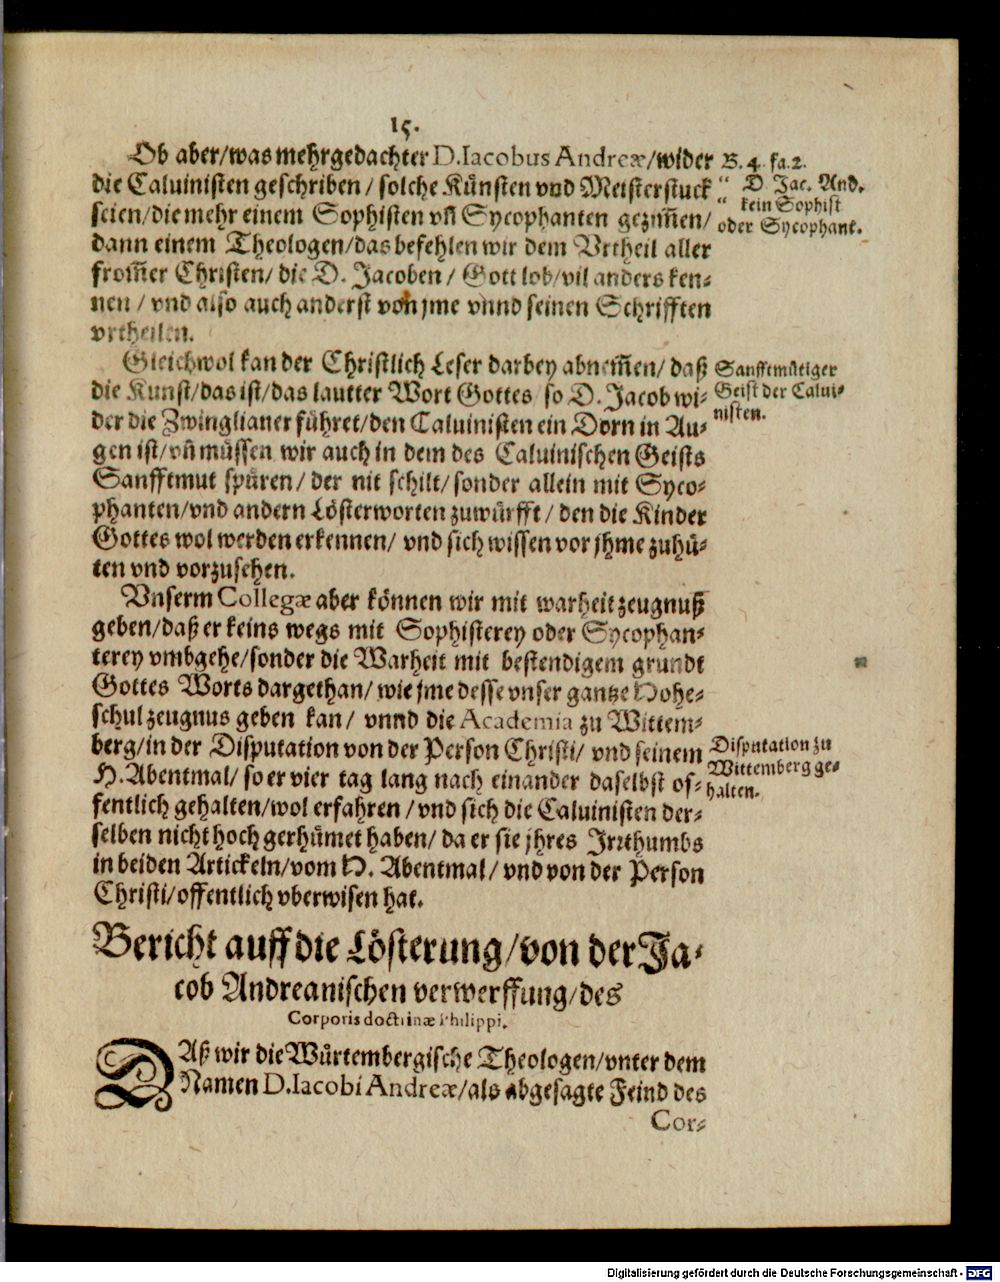 15.
Ob aber/was mehrgedachter D. Iacobus Andreæ/wider
B. 4. fa. 2.
die Caluinisten geschriben/ solche Künsten vnd Meisterstuck
“ D. Jac. And.
seien/die mehr einem Sophisten vñ Sycophanten gezim̃en/
“ kein Sophist
oder Sycophant.
dann einem Theologen/das befehlen wir dem Vrtheil aller
from̃er Christen/ die D. Jacoben/ Gott lob/vil anders ken-
nen/ vnd also auch anderst von jme vnnd seinen Schrifften
vrtheilen.
Gleichwol kan der Christlich Leser darbey abnem̃en/ daß
Sanfftmütiger
die Kunst/das ist/das lautter Wort Gottes so D. Jacob wi-
Geist der Calui-
nisten.
der die Zwinglianer führet/den Caluinisten ein Dorn in Au-
gen ist/vñ müssen wir auch in dem des Caluinischen Geists
Sanfftmut spüren/ der nit schilt/sonder allein mit Syco-
phanten/vnd andern Lösterworten zuwürfft/ den die Kinder
Gottes wol werden erkennen/ vnd sich wissen vor jhme zuhü-
ten vnd vorzusehen.
Vnserm Collegæ aber können wir mit warheit zeugnuß
geben/daß er keins wegs mit Sophisterey oder Sycophan-
terey vmbgehe/sonder die Warheit mit bestendigem grundt
Gottes Worts dargethan/ wie jme desse vnser gantze Hohe-
schul zeugnus geben kan/ vnnd die Academia zu Wittem-
berg/in der Disputation von der Person Christi/ vnd seinem
Disputation zu
Wittemberg ge-
H. Abentmal/ so er vier tag lang nach einander daselbst of-
halten.
fentlich gehalten/wol erfahren/vnd sich die Caluinisten der-
selben nicht hoch gerhümet haben/ da er sie jhres Irrthumbs
in beiden Artickeln/vom H. Abentmal/ vnd von der Person
Christi/offentlich vberwisen hat.
Bericht auff die Lösterung/von der Ja-
cob Andreanischen verwerffung/des
Corporis doctrinæ Philippi.
DAß wir die Würtembergische Theologen/vnter dem
Namen D. Iacobi Andreæ/als abgesagte Feind des
Cor-
Digitalisierung gefördert durch die Deutsche Forschungsgemeinschaft - DFG